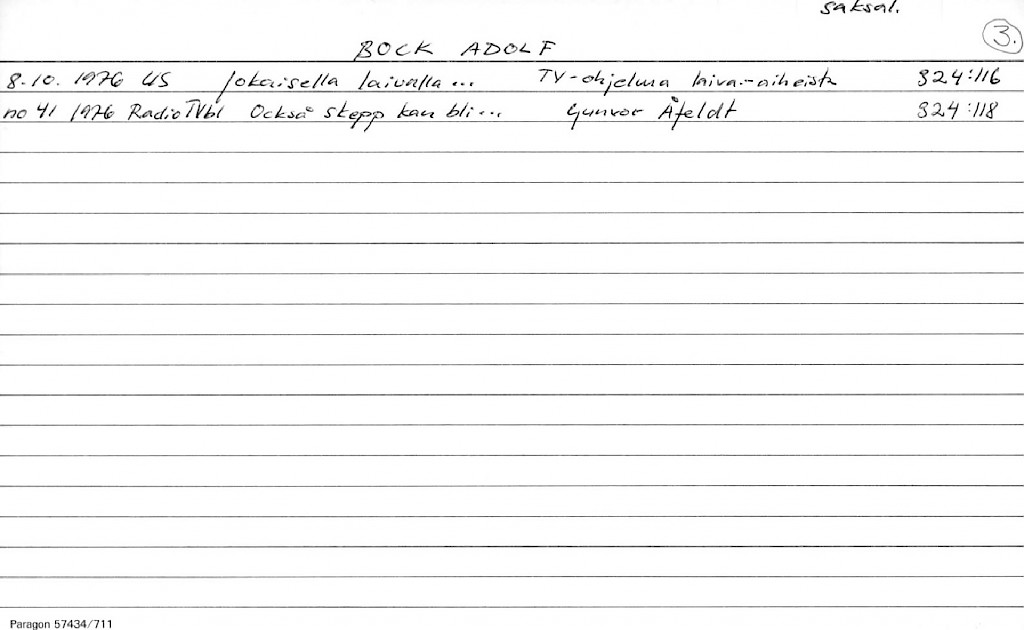 saksal.
3.
BOCK ADOLF
8.10. 1976 US Jokaisella laivalla... TV-ohjelma laiva-aiheista 324:116
no 41 1976 RadioTVbl Också skepp kan bli... Gunvor Åfeldt 324:118
Paragon 57434/711